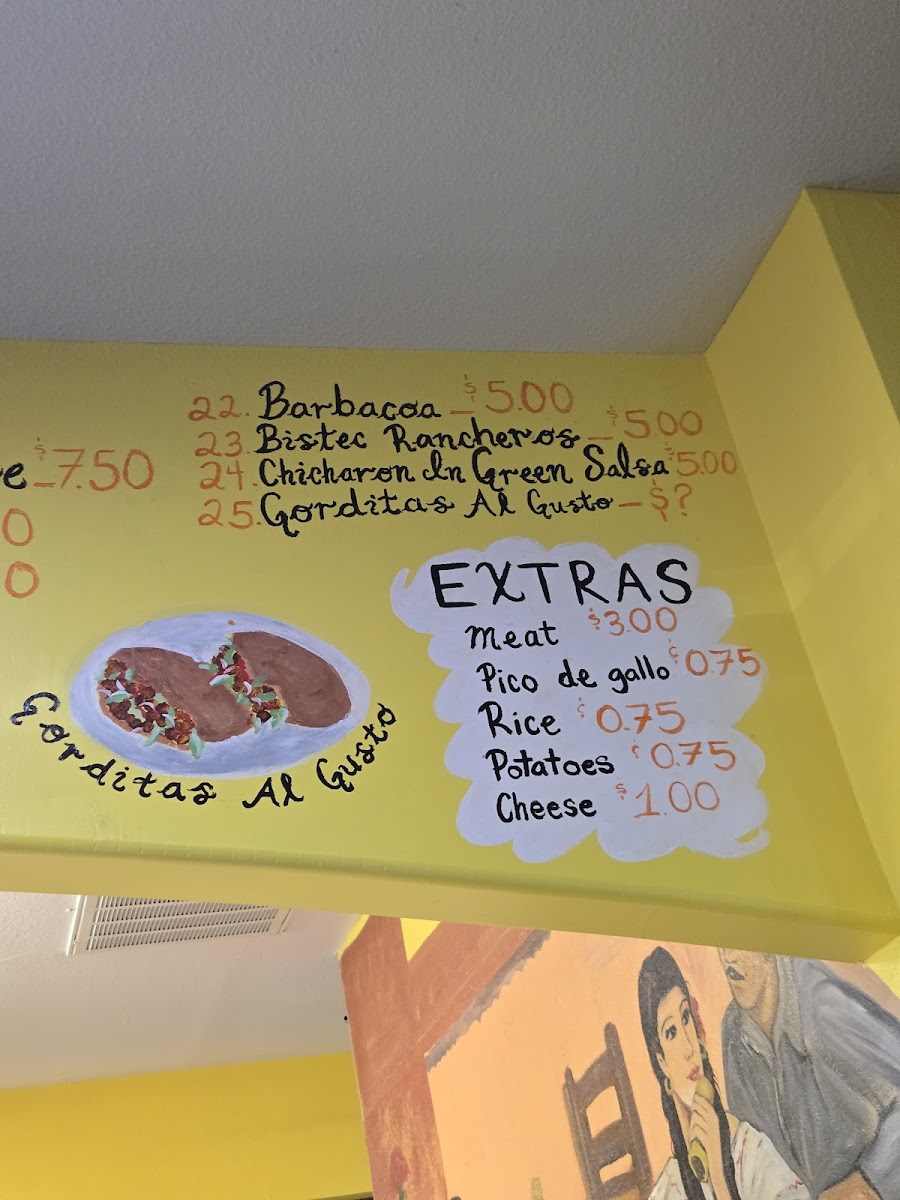 22. Barbacoa - $5.00
23. Bistec Rancheros - $5.00
24. Chicharon In Green Salsa $5.00
25. Gorditas Al Gusto - $?
e - $7.50
0
0
EXTRAS
Meat $3.00
Pico de gallo ¢0.75
Rice ¢0.75
Potatoes ¢0.75
Cheese $1.00
Gorditas Al Gusto